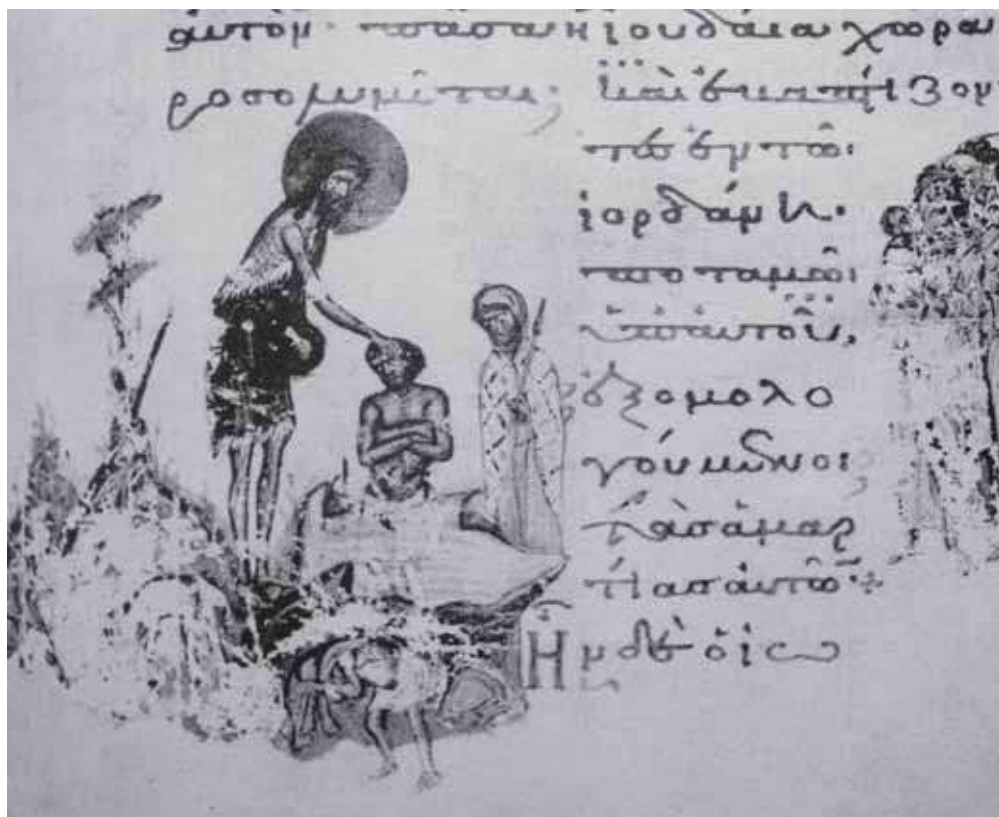 αυτον· πασα η ιουδαία χωρα
ροσολυμῖται· καὶ ἐβαπτίζον
το ἐν τῶ
ἰορδάνη·
ποταμῶ
ὑπ αυτοῦ,
ἐξομολο
γούμενοι
τὰσ ἁμαρ
τίασ αὐτῶ:
Ἦν δὲ ὁ ἰω